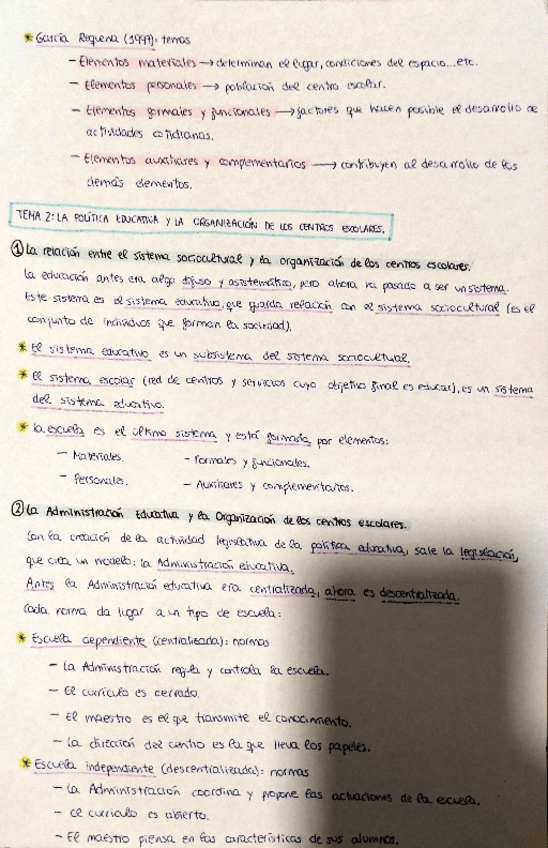 * García Requena (1997): temas
- Elementos materiales → determinan el lugar, condiciones del espacio... etc.
- Elementos personales → población del centro escolar.
- Elementos formales y funcionales → factores que hacen posible el desarrollo de
actividades cotidianas.
- Elementos auxiliares y complementarios → contribuyen al desarrollo de los
demás elementos.
TEMA 2: LA POLÍTICA EDUCATIVA Y LA ORGANIZACIÓN DE LOS CENTROS ESCOLARES.
① La relación entre el sistema sociocultural y la organización de los centros escolares.
La educación antes era algo difuso y asistemático, pero ahora ha pasado a ser un sistema.
Este sistema es el sistema educativo, que guarda relación con el sistema sociocultural (es el
conjunto de individuos que forman la sociedad).
* El sistema educativo es un subsistema del sistema sociocultural.
* El sistema escolar (red de centros y servicios cuyo objetivo final es educar), es un sistema
del sistema educativo.
* La escuela es el último sistema y está formada por elementos:
- Materiales. - Formales y funcionales.
- Personales. - Auxiliares y complementarios.
② La Administración Educativa y la Organización de los centros escolares.
Con la creación de la actividad legislativa de la política educativa, sale la legislación,
que crea un modelo: la Administración educativa.
Antes la Administración educativa era centralizada, ahora es descentralizada.
Cada norma da lugar a un tipo de escuela:
* Escuela dependiente (centralizada): normas
- La Administración regula y controla la escuela.
- El currículo es cerrado.
- El maestro es el que transmite el conocimiento.
- La dirección del centro es la que lleva los papeles.
* Escuela independiente (descentralizada): normas
- La Administración coordina y propone las actuaciones de la escuela.
- El currículo es abierto.
- El maestro piensa en las características de sus alumnos.